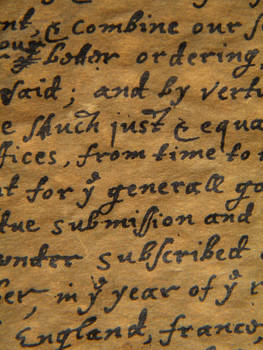 nt, & combine our s
our
r yͤ beter ordering,
said; and by vertu
e shuch just & equa
ffices, from time to
t for yͤ generall go
tue submission and
under subscribed
ber, in yͤ year of yͤ r
England, france,